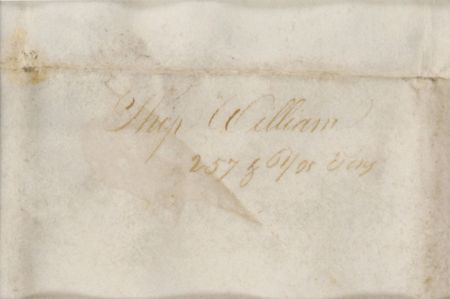 Ship William
257 & Tons